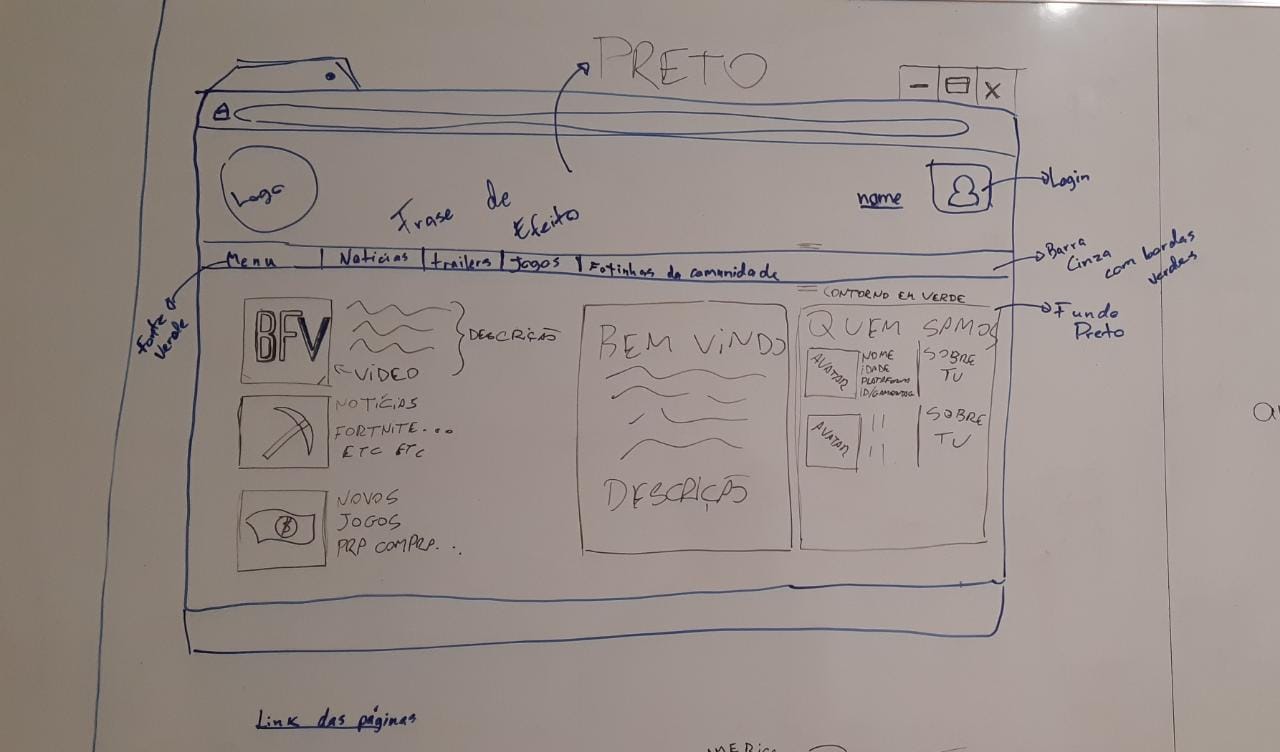 PRETO
Logo
Frase de
Efeito
nome
Login
Menu
Notícias
trailers
Jogos
Fotinhas da comunidade
Barra
Cinza
com bordas
verdes
Fonte
Verde
CONTORNO EM VERDE
Fundo
Preto
BFV
DESCRIÇÃO
VIDEO
NOTÍCIAS
FORTNITE...
ETC ETC
NOVOS
JOGOS
PRA COMPRA...
BEM VINDO
DESCRIÇÃO
QUEM SAMOS
AVATAR
NOME
IDADE
PLATAFORMA
ID/GAMERTAG
SOBRE
TU
AVATAR
SOBRE
TU
Link das páginas